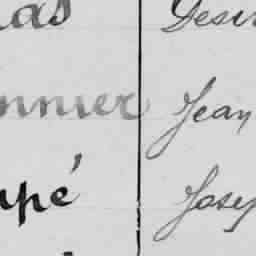 as Desir
nnier Jean
upé Josep